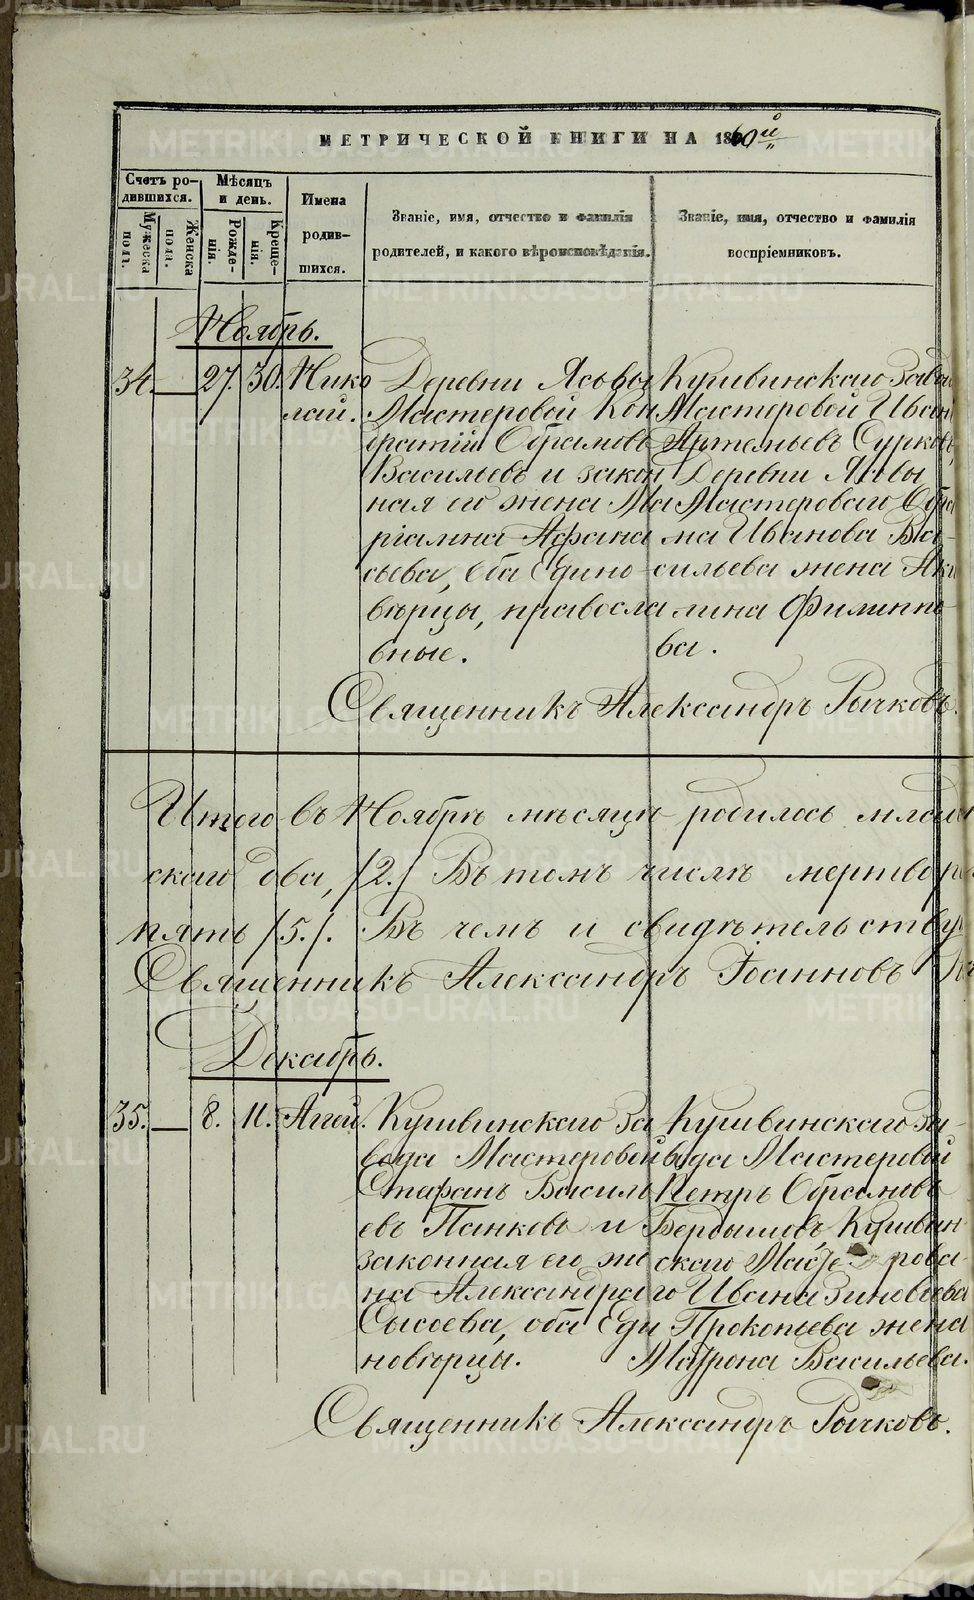 МЕТРИЧЕСКОЙ КНИГИ НА 1860й
Счетъ ро-
дившихся.
Мужеска
полъ.
Женска
пола.
Мѣсяцъ
и день.
Рожде-
нія.
Креще-
нія.
Имена
родив-
шихся.
Званіе, имя, отчество и фамилія
родителей, и какого вѣроисповѣданія.
Званіе, имя, отчество и фамилія
воспріемниковъ.
Ноябрь.
34. — 27. 30. Нико
лай.
Деревни Ясьвы
Мастеровой Кон
дратій Абрамовъ
Васильевъ и закон
ная его жена Ма
ріамна Афана
сьева, оба Едино-
вѣрцы, правосла
вные.
Кушвинскаго Заво
Мастеровой Иван
Артемьевъ Сурковъ,
Деревни Ясьвы
Мастероваго Абра
ма Иванова Ва-
сильева жена Аку
лина Филиппо-
ва.
Священникъ Александръ Рычковъ.
Итого въ Ноябрѣ мѣсяцѣ родилось
скаго два, /2./ Въ томъ числѣ мертвор
пять /5./. Въ чемъ и свидѣтельству
Священникъ Александръ Іоанновъ
Декабрь.
35. — 8. 11. Аггей.
Кушвинскаго За
вода Мастеровой
Стефанъ Василь
евъ Панковъ и
законная его же
на Александра
Сысоева, оба Еди
новѣрцы.
Кушвинскаго За-
вода Мастеровой
Петръ Абрамовъ
Бердышовъ, Кушвин
скаго Масте рова-
го Ивана Зиновьева
Прокопьева жена
Матрона Васильева.
Священникъ Александръ Рычковъ.
METRIKI.GASO-URAL.RU